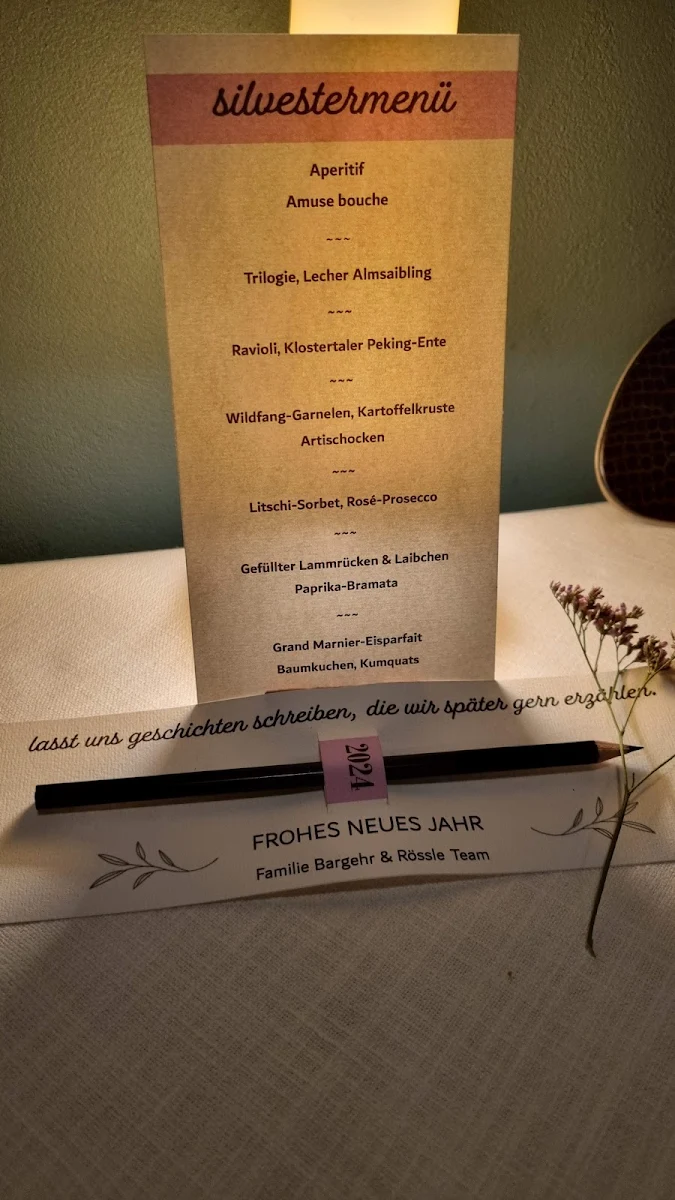 silvestermenü
Aperitif
Amuse bouche
~~~
Trilogie, Lecher Almsaibling
~~~
Ravioli, Klostertaler Peking-Ente
~~~
Wildfang-Garnelen, Kartoffelkruste
Artischocken
~~~
Litschi-Sorbet, Rosé-Prosecco
~~~
Gefüllter Lammrücken & Laibchen
Paprika-Bramata
~~~
Grand Marnier-Eisparfait
Baumkuchen, Kumquats
lasst uns geschichten schreiben, die wir später gern erzählen.
2024
FROHES NEUES JAHR
Familie Bargehr & Rössle Team